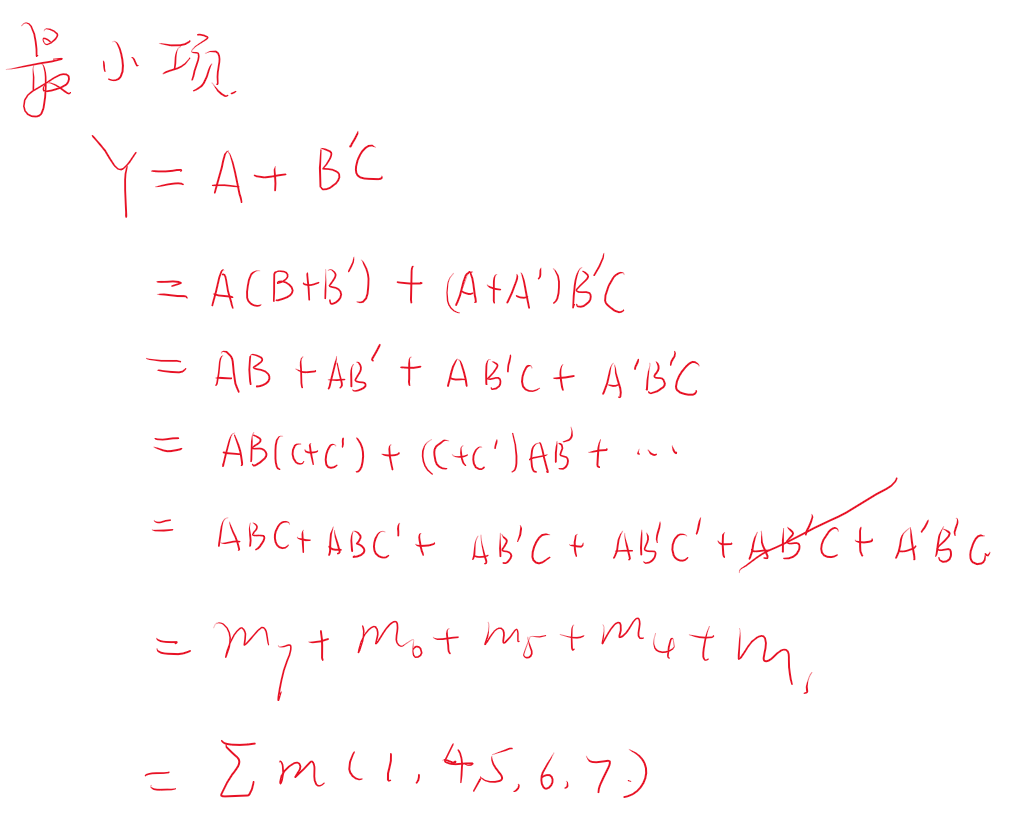 最小项.
Y = A + B'C
= A(B+B') + (A+A')B'C
= AB + AB' + AB'C + A'B'C
= AB(C+C') + (C+C')AB' + ...
= ABC + ABC' + AB'C + AB'C' + AB'C + A'B'C
= m₇ + m₆ + m₅ + m₄ + m₁
= Σm(1,4,5,6,7)